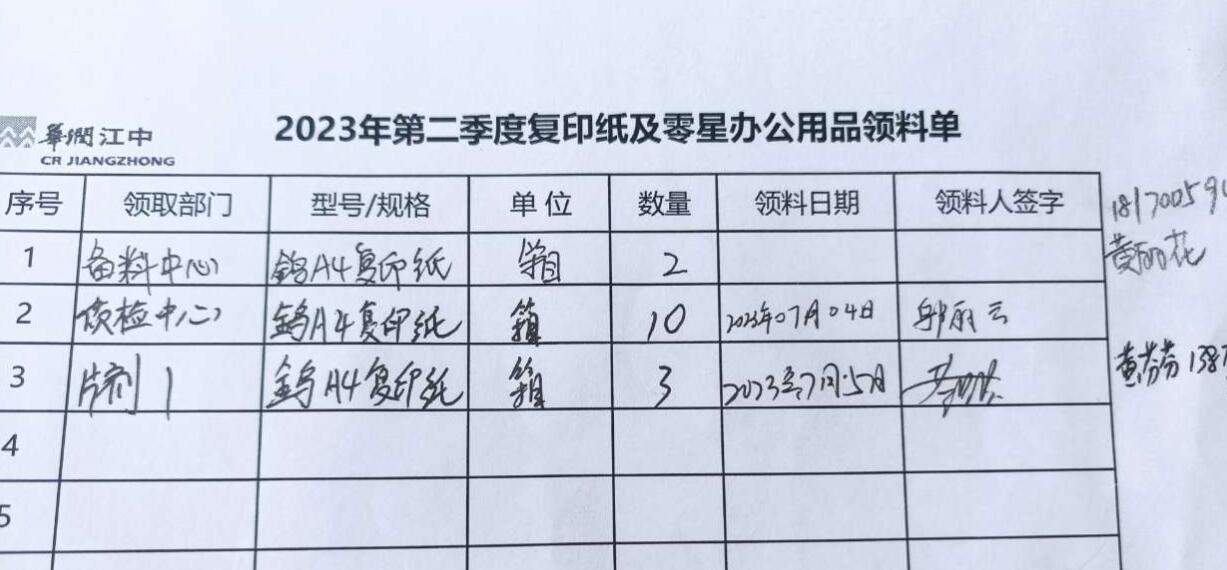 華潤江中
CR JIANGZHONG
2023年第二季度复印纸及零星办公用品领料单
序号 领取部门 型号/规格 单位 数量 领料日期 领料人签字
1817005
1 备料中心 A4复印纸 箱 2
黄丽花
2 质检中心 A4复印纸 箱 10 2023年07月04日 郭丽云
3 片剂1 A4复印纸 箱 3 2023年7月5日
黄芬芬 138
4
5